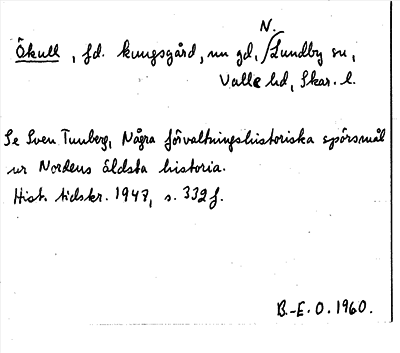 N.
Ökull, fd. kungsgård, nu gd, Lundby sn,
Valle hd, Skar. l.
Se Sven Tunberg, Några förvaltningshistoriska spörsmål
ur Nordens äldsta historia.
Hist. tidskr. 1947, s. 332 f.
B.-E. O. 1960.